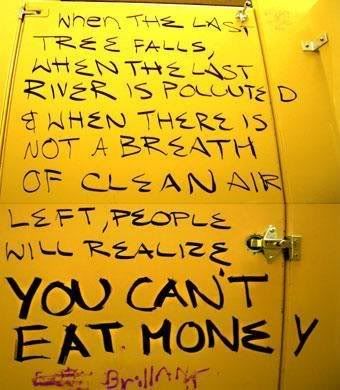 When THE LAST
TREE FALLS,
WHEN THE LAST
RIVER IS POLLUTED
& WHEN THERE IS
NOT A BREATH
OF CLEAN AIR
LEFT, PEOPLE
WILL REALIZE
YOU CAN'T
EAT MONEY
Brillant